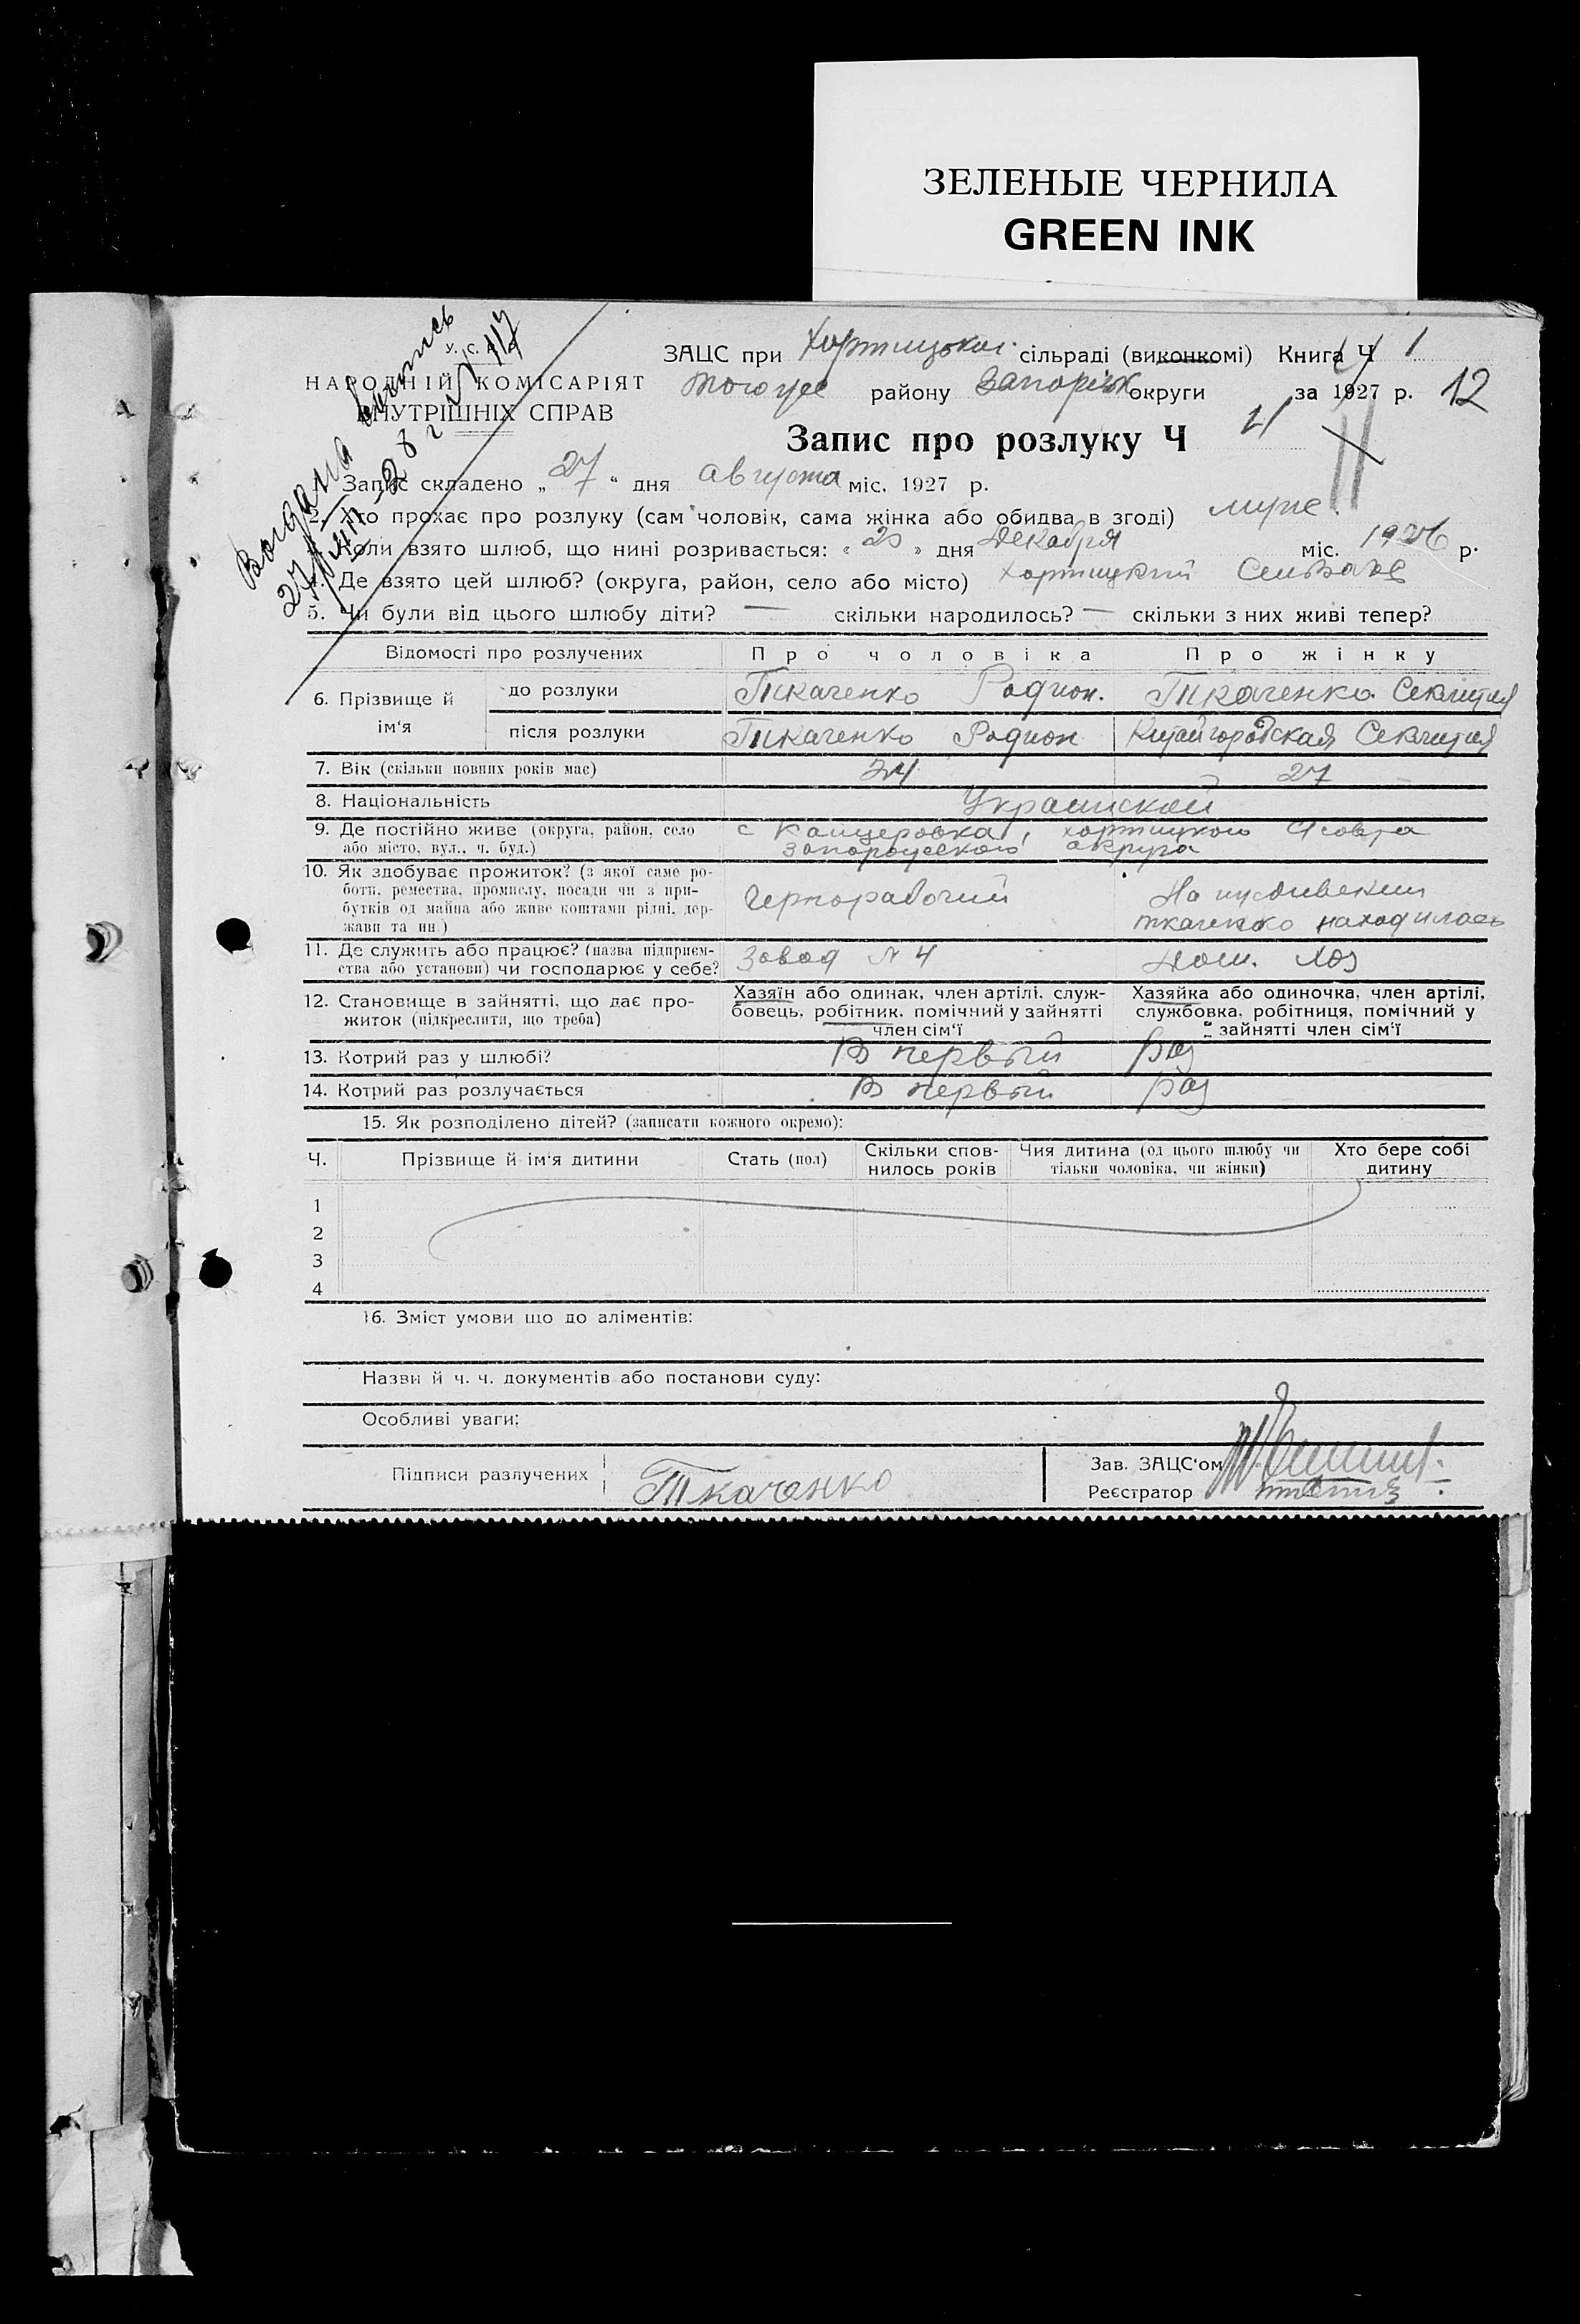 ЗЕЛЕНЫЕ ЧЕРНИЛА
GREEN INK
У. С. Р. Р.
НАРОДНІЙ КОМІСАРІЯТ
ВНУТРІШНІХ СПРАВ
Видана выпись
ЗАЦС при Хортицькой сільраді (виконкомі) Книга Ч 1
того же району Запорізьк округи за 1927 р. 12
Запис про розлуку Ч 4
1. Запис складено „27“ дня августа міс. 1927 р.
2. Хто прохає про розлуку (сам чоловік, сама жінка або обидва в згоді) муже.
3. Коли взято шлюб, що нині розривається: « 20 » дня Декабря міс. 1926 р.
4. Де взято цей шлюб? (округа, район, село або місто) Хортицкий
5. Чи були від цього шлюбу діти? — скільки народилось? — скільки з них живі тепер?
Відомості про розлучених Про чоловіка Про жінку
6. Прізвище й ім‘я
до розлуки Ткаченко Родион. Ткаченко Секлитія
після розлуки Ткаченко Родион Китайгородская Секлитія
7. Вік (скільки повних років має) 34 27
8. Національність Украинской
9. Де постійно живе (округа, район, село с Канцеровка, хортицкого
або місто, вул., ч. буд.) Запорожского округа
10. Як здобуває прожиток? (з якої саме ро-
боти, ремества, промислу, посади чи з при-
бутків од майна або живе коштами рідні, дер-
жави та ин.)
Чернорабочий
На иждивении
ткаченко находилась
11. Де служить або працює? (назва підприєм-
ства або установи) чи господарює у себе?
Завод № 4 Дом. Хоз
12. Становище в зайнятті, що дає про-
житок (підкреслити, що треба)
Хазяїн або одинак, член артілі, служ-
бовець, робітник, помічний у зайнятті
член сім‘ї
Хазяйка або одиночка, член артілі,
службовка, робітниця, помічний у
зайнятті член сім‘ї
13. Котрий раз у шлюбі? В первый раз
14. Котрий раз розлучається В первый раз
15. Як розподілено дітей? (записати кожного окремо):
Ч. Прізвище й ім‘я дитини Стать (пол) Скільки спов-
нилось років Чия дитина (од цього шлюбу чи
тільки чоловіка, чи жінки) Хто бере собі
дитину
1
2
3
4
16. Зміст умови що до аліментів:
Назви й ч. ч. документів або постанови суду:
Особливі уваги:
Підписи разлучених Ткаченко
Зав. ЗАЦС‘ом
Реєстратор